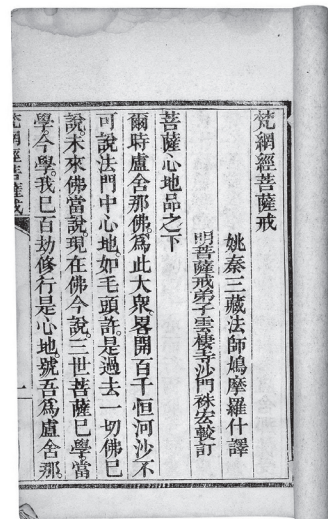 梵網經菩薩戒
姚秦三藏法師鳩摩羅什譯
明菩薩戒弟子雲棲寺沙門袾宏較訂
菩薩心地品之下
爾時盧舍那佛。爲此大衆畧開百千恒河沙不
可說法門中心地。如毛頭許。是過去一切佛已
說。未來佛當說。現在佛今說。三世菩薩已學當
學今學。我已百劫修行是心地。號吾爲盧舍那。
梵網經菩薩戒
一